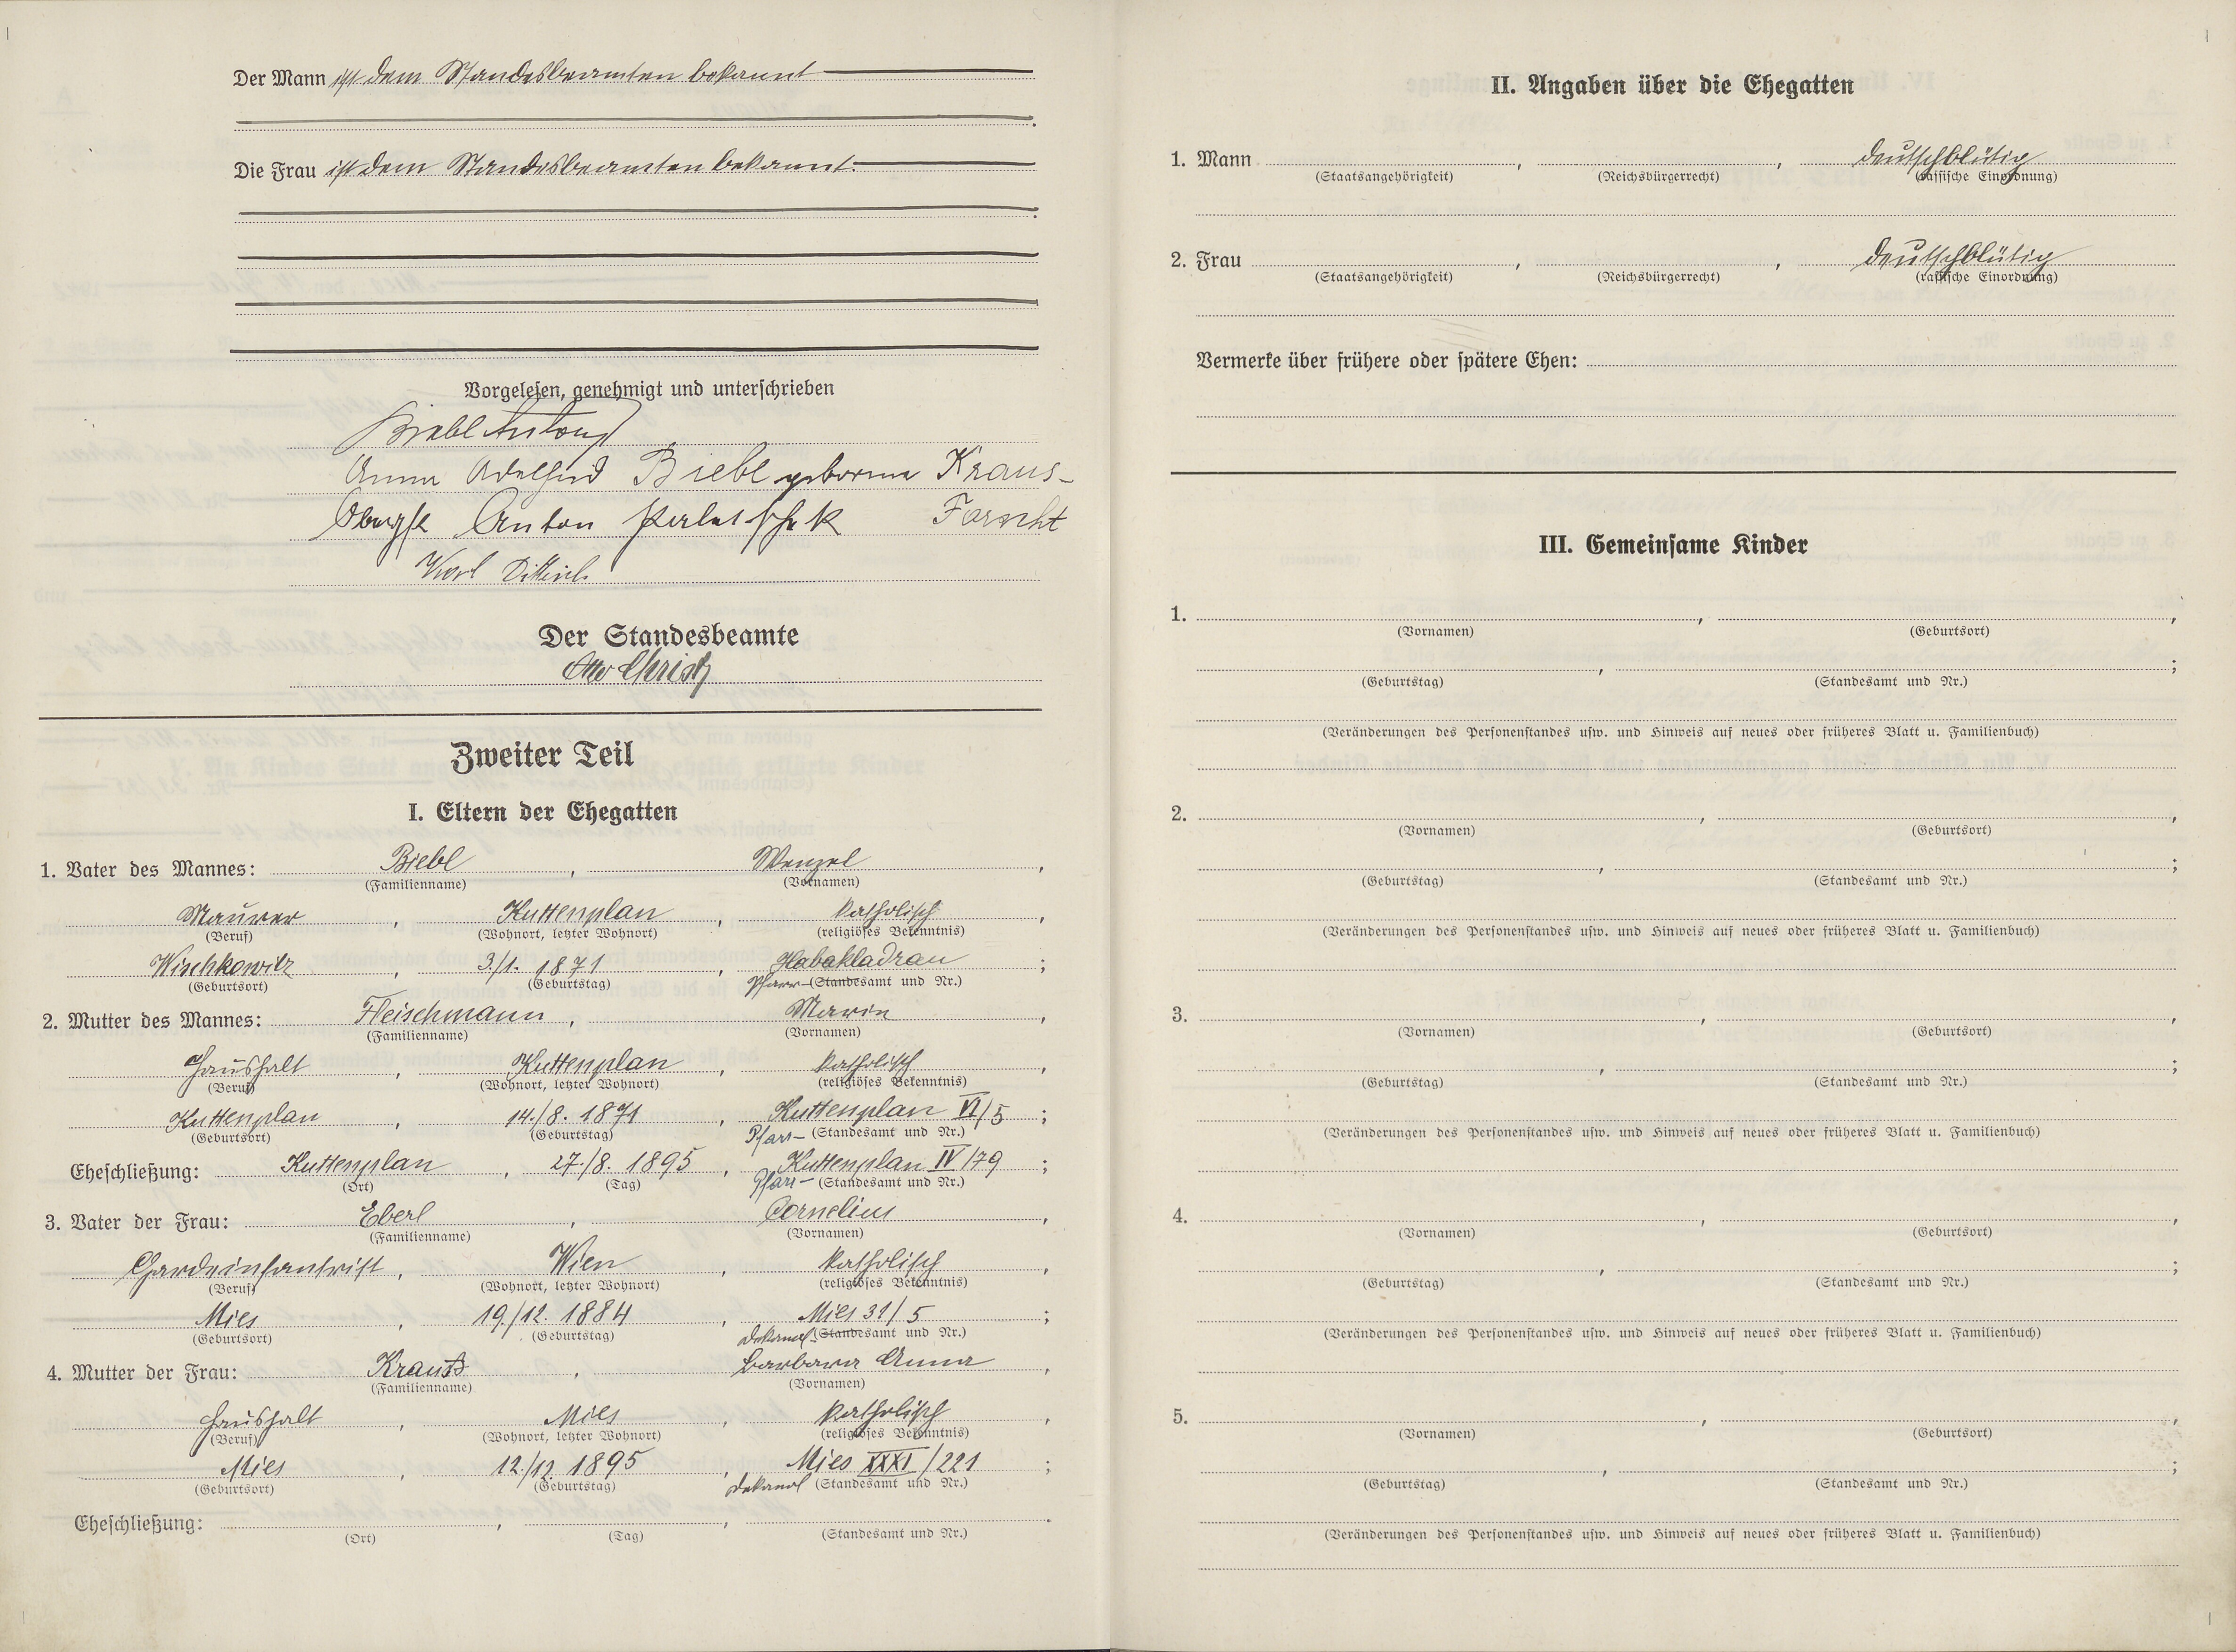 Der Mann ist dem Standesbeamten bekannt
Die Frau ist dem Standesbeamten bekannt.
Vorgelesen, genehmigt und unterschrieben
Biebl Anton
Anna Adelheid Biebl geborene Kraus-
Anton Forscht
Karl Dittrich
Der Standesbeamte
Otto Christ
Zweiter Teil
I. Eltern der Ehegatten
1. Vater des Mannes: Biebl, Wenzel,
(Familienname) (Vornamen)
Maurer, Kuttenplan, katholisch,
(Beruf) (Wohnort, letzter Wohnort) (religiöses Bekenntnis)
Wischkowitz, 3./1. 1871, Habakladrau;
(Geburtsort) (Geburtstag) Pfarr-(Standesamt und Nr.)
2. Mutter des Mannes: Fleischmann, Marie,
(Familienname) (Vornamen)
Haushalt, Kuttenplan, katholisch,
(Beruf) (Wohnort, letzter Wohnort) (religiöses Bekenntnis)
Kuttenplan, 14./8. 1871, Kuttenplan VI/5;
(Geburtsort) (Geburtstag) Pfarr-(Standesamt und Nr.)
Eheschließung: Kuttenplan, 27./8. 1895, Kuttenplan IV/79;
(Ort) (Tag) Pfarr-(Standesamt und Nr.)
3. Vater der Frau: Eberl, Cornelius,
(Familienname) (Vornamen)
Gardeinfantrist, Wien, katholisch,
(Beruf) (Wohnort, letzter Wohnort) (religiöses Bekenntnis)
Mies, 19./12. 1884, Mies 31/5;
(Geburtsort) (Geburtstag) Dekanal-(Standesamt und Nr.)
4. Mutter der Frau: Kraus, Barbara Anna,
(Familienname) (Vornamen)
Haushalt, Mies, katholisch,
(Beruf) (Wohnort, letzter Wohnort) (religiöses Bekenntnis)
Mies, 12./12. 1895, Mies XXXI/221;
(Geburtsort) (Geburtstag) Dekanal (Standesamt und Nr.)
Eheschließung: , , .
(Ort) (Tag) (Standesamt und Nr.)
II. Angaben über die Ehegatten
1. Mann , , deutschblütig
(Staatsangehörigkeit) (Reichsbürgerrecht) (rassische Einordnung)
2. Frau , , deutschblütig
(Staatsangehörigkeit) (Reichsbürgerrecht) (rassische Einordnung)
Vermerke über frühere oder spätere Ehen:
III. Gemeinsame Kinder
1. , ,
(Vornamen) (Geburtsort)
, ;
(Geburtstag) (Standesamt und Nr.)
(Veränderungen des Personenstandes usw. und Hinweis auf neues oder früheres Blatt u. Familienbuch)
2. , ,
(Vornamen) (Geburtsort)
, ;
(Geburtstag) (Standesamt und Nr.)
(Veränderungen des Personenstandes usw. und Hinweis auf neues oder früheres Blatt u. Familienbuch)
3. , ,
(Vornamen) (Geburtsort)
, ;
(Geburtstag) (Standesamt und Nr.)
(Veränderungen des Personenstandes usw. und Hinweis auf neues oder früheres Blatt u. Familienbuch)
4. , ,
(Vornamen) (Geburtsort)
, ;
(Geburtstag) (Standesamt und Nr.)
(Veränderungen des Personenstandes usw. und Hinweis auf neues oder früheres Blatt u. Familienbuch)
5. , ,
(Vornamen) (Geburtsort)
, ;
(Geburtstag) (Standesamt und Nr.)
(Veränderungen des Personenstandes usw. und Hinweis auf neues oder früheres Blatt u. Familienbuch)